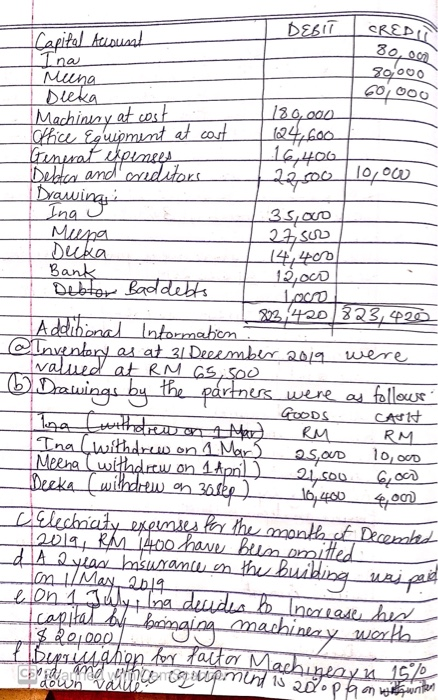 DEBIT CREDIT
Capital Account
Ina 80,000
Meena 80,000
Deeka 60,000
Machinery at cost 180,000
Office Equipment at cost 124,600
General expenses 16,400
Debtor and creditors 22,500 10,000
Drawings:
Ina 35,000
Meena 27,500
Deeka 14,400
Bank 12,000
Debtor Bad debts 1,000
823,420 823,420
Additional Information
(a) Inventory as at 31 December 2019 were
valued at RM 65,500
(b) Drawings by the partners were as follows:
GOODS CASH
Ina (withdrew on 1 Mar) RM RM
Ina (withdrew on 1 Mar) 25,000 10,000
Meena (withdrew on 1 April) 21,500 6,000
Deeka (withdrew on 30 sep) 10,400 4,000
c Electricity expenses for the month of December
2019, RM 1400 have been omitted
d A 2 year insurance on the building was paid
on 1/May 2019
e On 1 July, Ina decides to Increase her
capital by bringing machinery worth
$ 201,000
f Depreciation for factor Machinery is 15%
and office equipment is 20% p/a on
down value